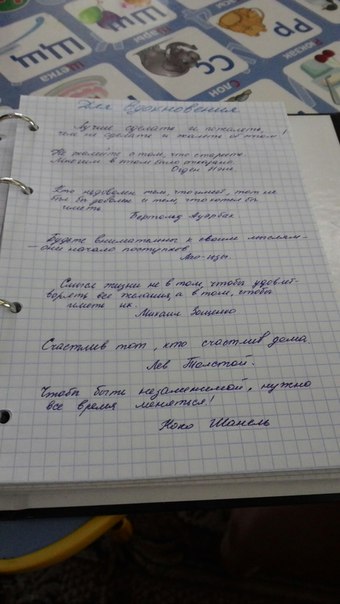 Щётка
Щщ
Слон
Сс
Рюкзак
Рр
Шш
Для вдохновения
Лучше сделать и пожалеть,
чем не сделать и жалеть об этом!
Не жалейте о том, что стареете.
Многим в этом было отказано.
Огден Нэш
Кто недоволен тем, что имеет, тот не
был бы доволен и тем, что хотел бы
иметь
Бертольд Ауэрбах
Будьте внимательны к своим мыслям-
они начало поступков.
Лао-цзы.
Смысл жизни не в том, чтобы удовлет-
ворять все желания, а в том, чтобы
иметь их.
Михаил Зощенко
Счастлив тот, кто счастлив дома
Лев Толстой.
Чтобы быть незаменимой, нужно
все время меняться!
Коко Шанель